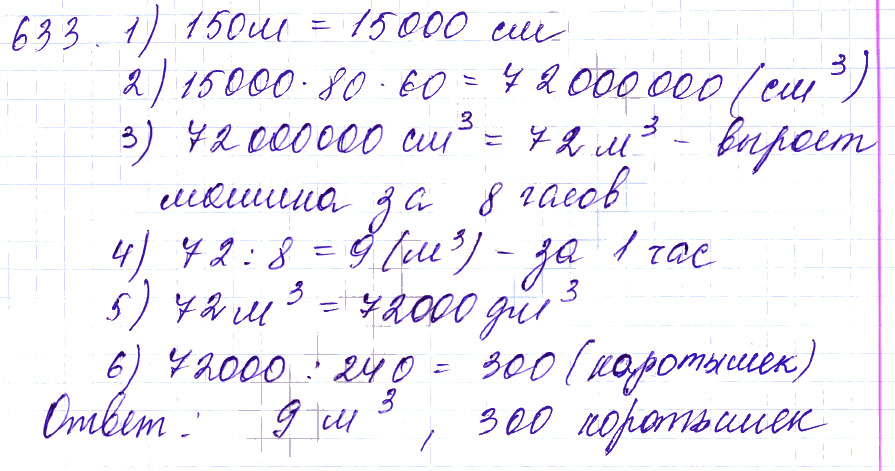 633. 1) 150м = 15000 см
2) 15000 · 80 · 60 = 72000000 (см³)
3) 72000000 см³ = 72 м³ - выроет
машина за 8 часов
4) 72 : 8 = 9 (м³) - за 1 час
5) 72 м³ = 72000 дм³
6) 72000 : 240 = 300 (коротышек)
Ответ: 9 м³, 300 коротышек